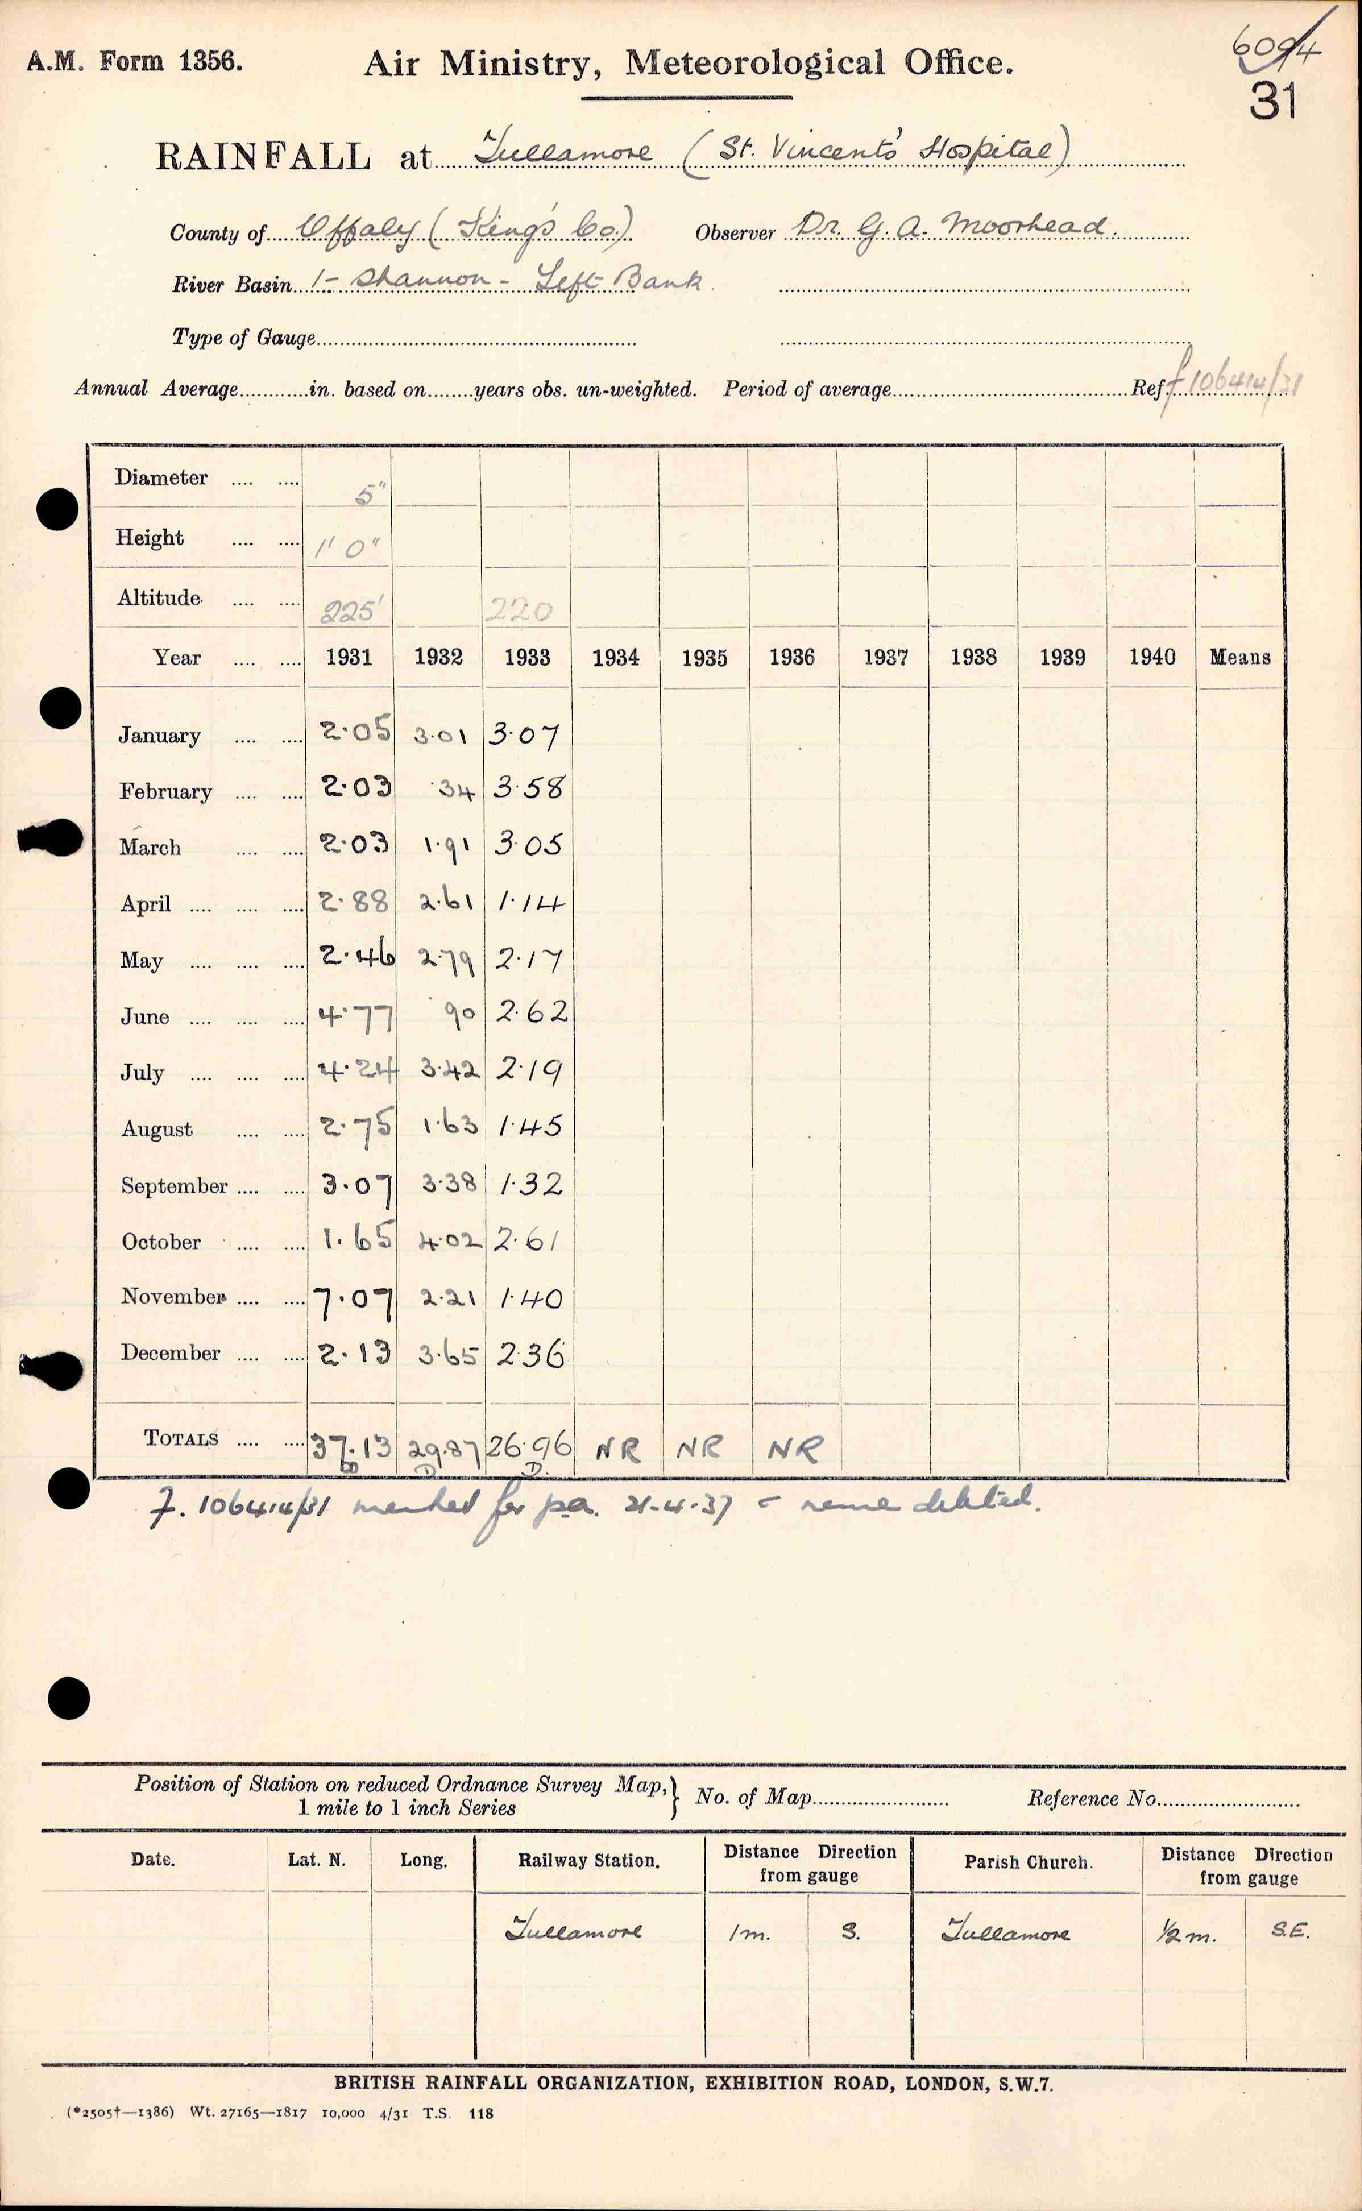 A.M. Form 1356. Air Ministry, Meteorological Office. 6094
31
RAINFALL at Tullamore (St. Vincent's Hospital)
County of Offaly (King's Co.) Observer Dr. G. A. Moorhead.
River Basin 1- Shannon - Left Bank.
Type of Gauge
Annual Average in. based on years obs. un-weighted. Period of average Ref. f 106414/31
Diameter 5"
Height 1' 0"
Altitude 225' 220
Year 1931 1932 1933 1934 1935 1936 1937 1938 1939 1940 Means
January 2.05 3.01 3.07
February 2.03 .34 3.58
March 2.03 1.91 3.05
April 2.88 2.61 1.14
May 2.46 2.79 2.17
June 4.77 .90 2.62
July 4.24 3.42 2.19
August 2.75 1.63 1.45
September 3.07 3.38 1.32
October 1.65 4.02 2.61
November 7.07 2.21 1.40
December 2.13 3.65 2.36
TOTALS 37.13 29.87 26.96 NR NR NR
D D.
f. 106414/31 marked for p.a. 21-4-37 - name deleted.
Position of Station on reduced Ordnance Survey Map, } No. of Map Reference No.
1 mile to 1 inch Series
Date. Lat. N. Long. Railway Station. Distance Direction from gauge Parish Church. Distance Direction from gauge
Tullamore 1 m. S. Tullamore ½ m. S.E.
BRITISH RAINFALL ORGANIZATION, EXHIBITION ROAD, LONDON, S.W.7.
(*2505†—1386) Wt. 27165—1817 10,000 4/31 T.S. 118